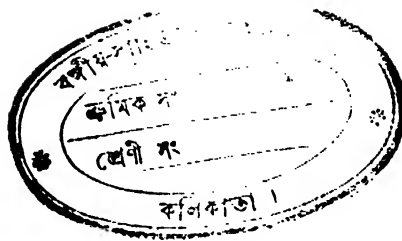 বঙ্গীয়-সাহি
ক্রমিক সং
শ্রেণী সং
কলিকাতা ।